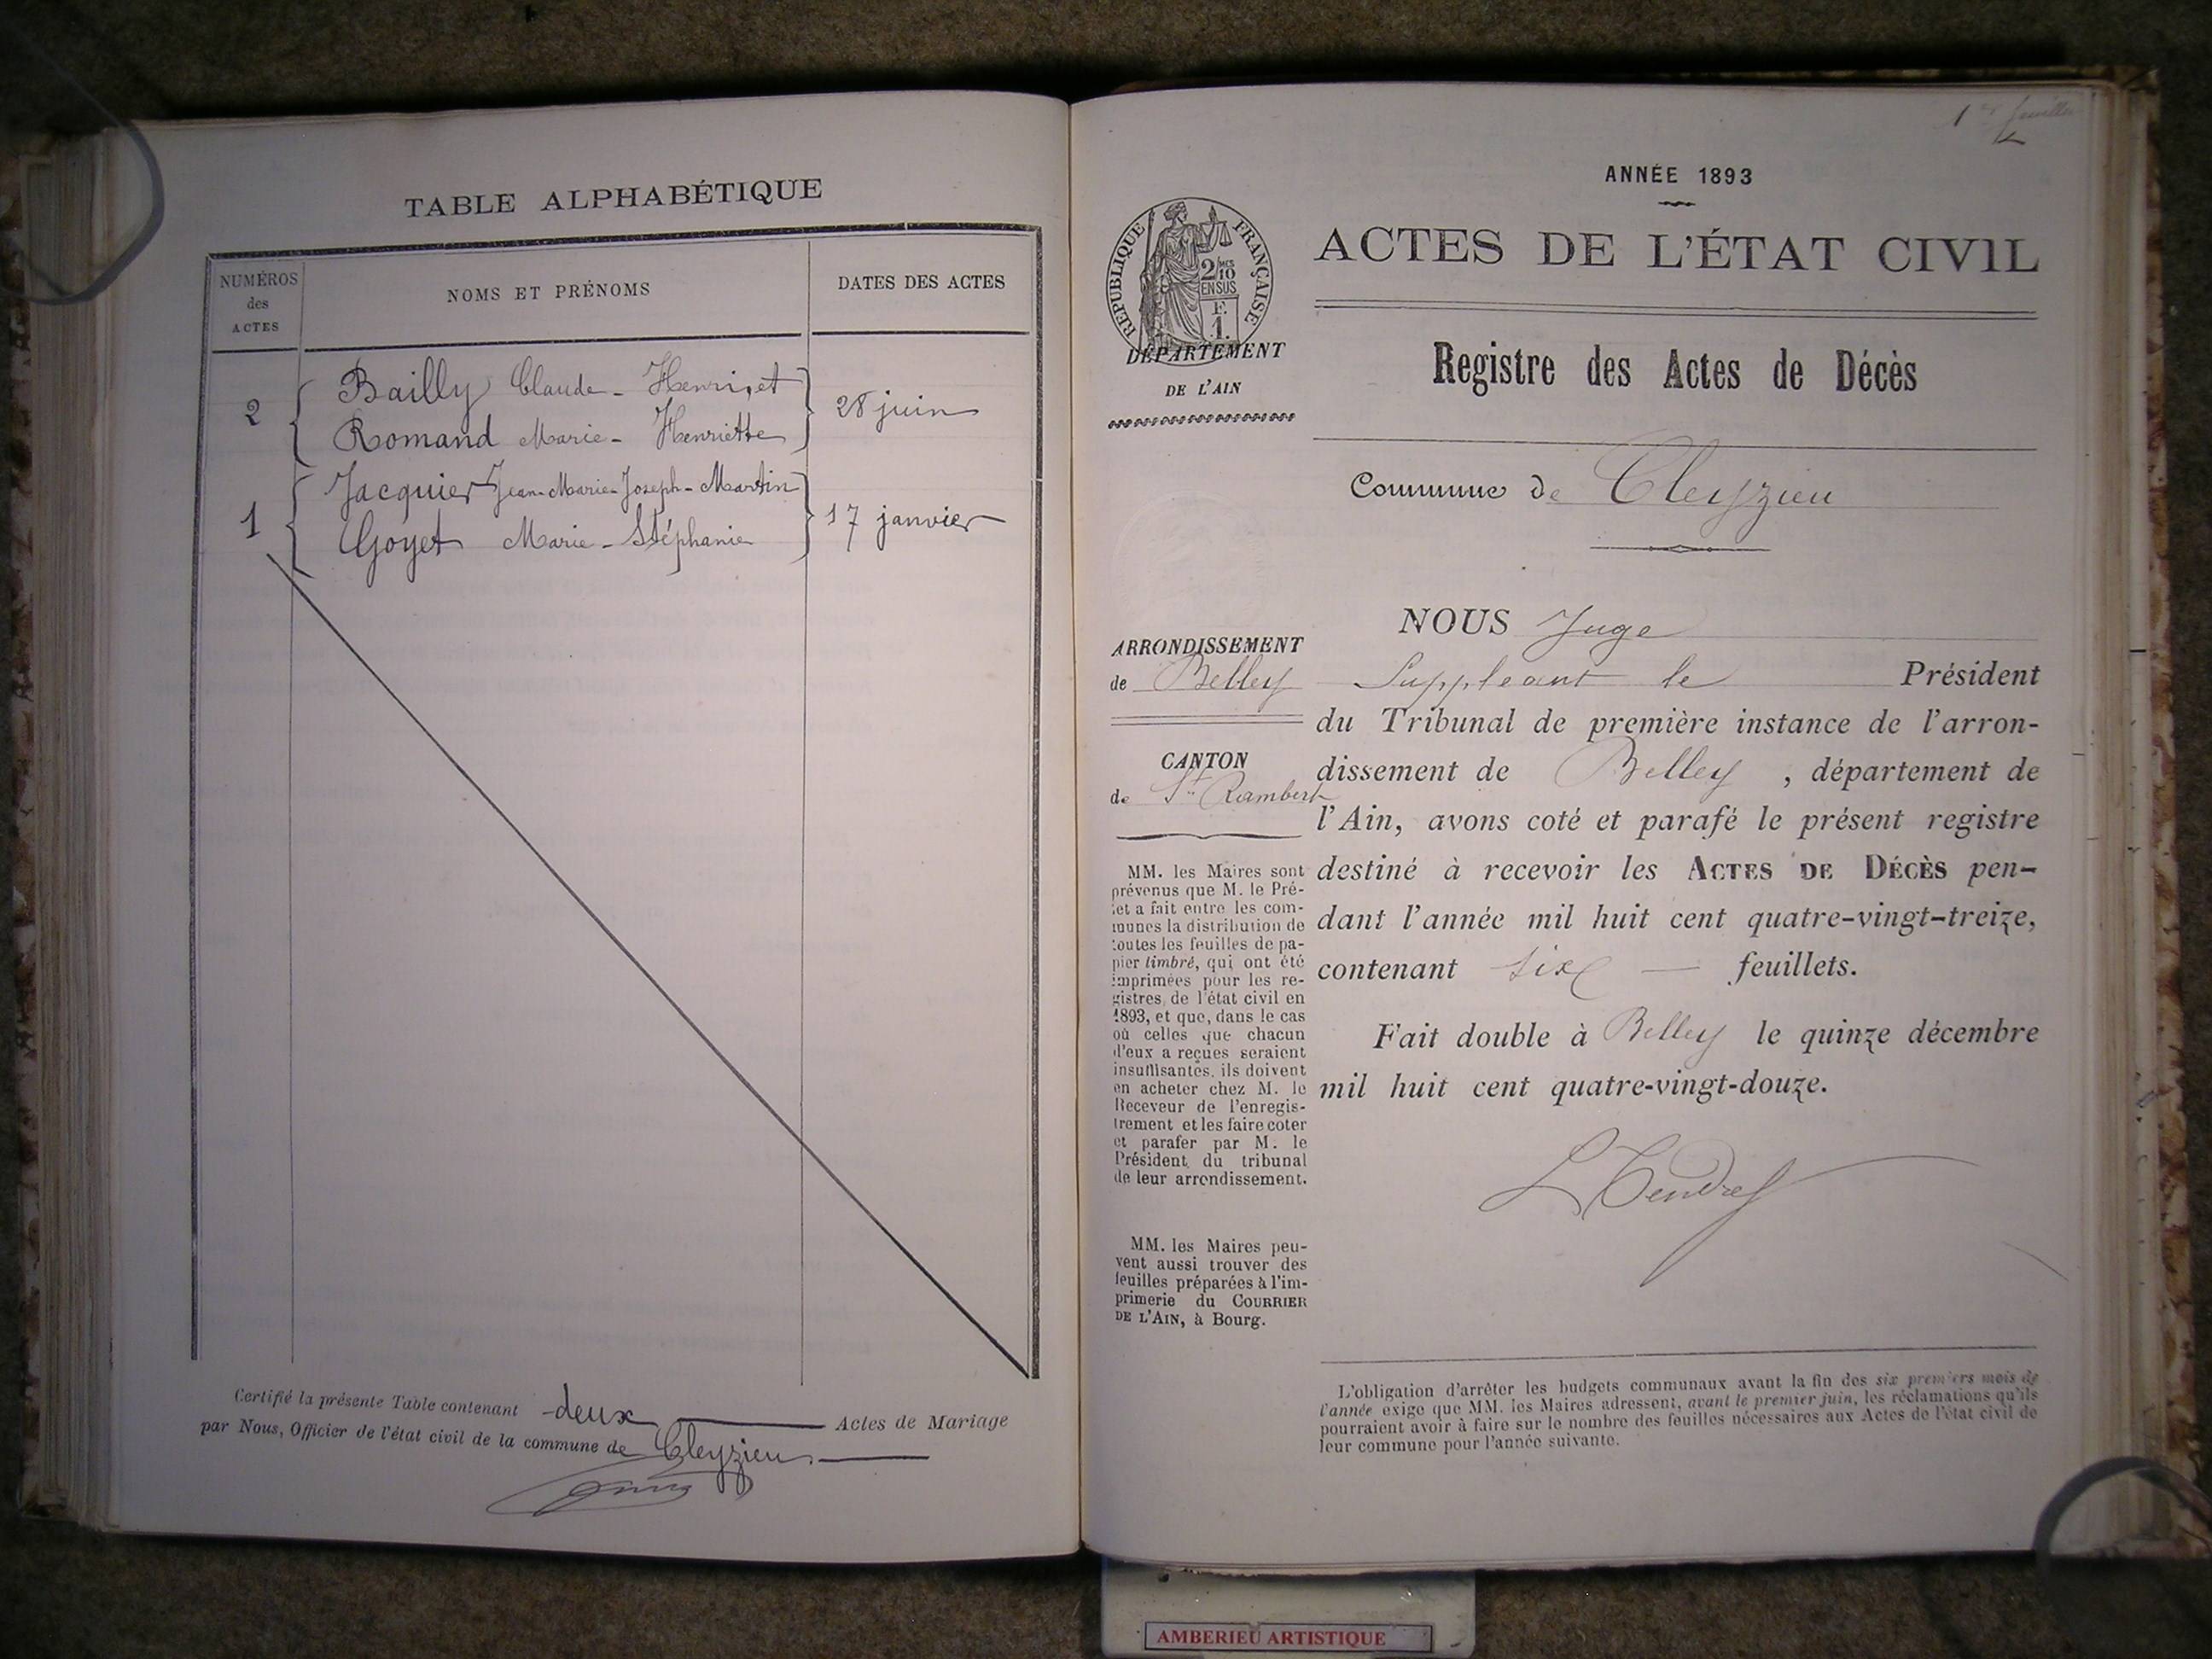 TABLE ALPHABÉTIQUE
NUMÉROS
des
ACTES
NOMS ET PRÉNOMS
DATES DES ACTES
2
Bailly Claude-Henri, et
Romand Marie-Henriette
28 juin
1
Jacquier Jean-Marie-Joseph-Martin
Goyet Marie-Stéphanie
17 janvier
Certifié la présente Table contenant deux Actes de Mariage
par Nous, Officier de l'état civil de la commune de Cleyzieu
1er feuillet
ANNÉE 1893
RÉPUBLIQUE FRANÇAISE
2/10
MES
EN SUS
F.
1.
DÉPARTEMENT
DE L'AIN
ACTES DE L'ÉTAT CIVIL
Registre des Actes de Décès
Commune de Cleyzieu
ARRONDISSEMENT
de Belley
CANTON
de St Rambert
MM. les Maires sont
prévenus que M. le Pré-
fet a fait entre les com-
munes la distribution de
toutes les feuilles de pa-
pier timbré, qui ont été
imprimées pour les re-
gistres de l'état civil en
1893, et que, dans le cas
où celles que chacun
d'eux a reçues seraient
insuffisantes, ils doivent
en acheter chez M. le
Receveur de l'enregis-
trement et les faire coter
et parafer par M. le
Président du tribunal
de leur arrondissement.
MM. les Maires peu-
vent aussi trouver des
feuilles préparées à l'im-
primerie du COURRIER
DE L'AIN, à Bourg.
NOUS Juge
Suppléant le Président
du Tribunal de première instance de l'arron-
dissement de Belley, département de
l'Ain, avons coté et parafé le présent registre
destiné à recevoir les ACTES DE DÉCÈS pen-
dant l'année mil huit cent quatre-vingt-treize,
contenant six — feuillets.
Fait double à Belley le quinze décembre
mil huit cent quatre-vingt-douze.
L'obligation d'arrêter les budgets communaux avant la fin des six premiers mois de
l'année exige que MM. les Maires adressent, avant le premier juin, les réclamations qu'ils
pourraient avoir à faire sur le nombre des feuilles nécessaires aux Actes de l'état civil de
leur commune pour l'année suivante.
AMBERIEU ARTISTIQUE